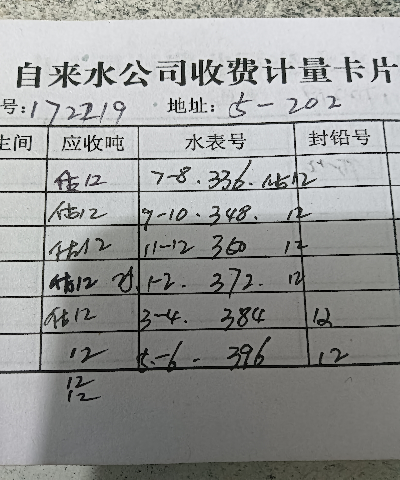 自来水公司收费计量卡片
号:172219 地址: 5-202
生间 应收吨 水表号 封铅号
估12 7-8.336.估12
估12 9-10.348. 12
估12 11-12 360 12
估12 1-2.372.12
估12 3-4.384 12
12 5-6-396 12
12
12